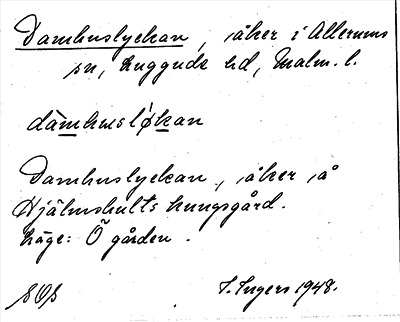 Damhuslyckan, åker i Allerums
sn, Luggude hd, Malm. l.
dàmhusløkan
Damhuslyckan, åker å
Hjälmshults kungsgård.
Läge: Ö gården.
I. Ingers 1948.